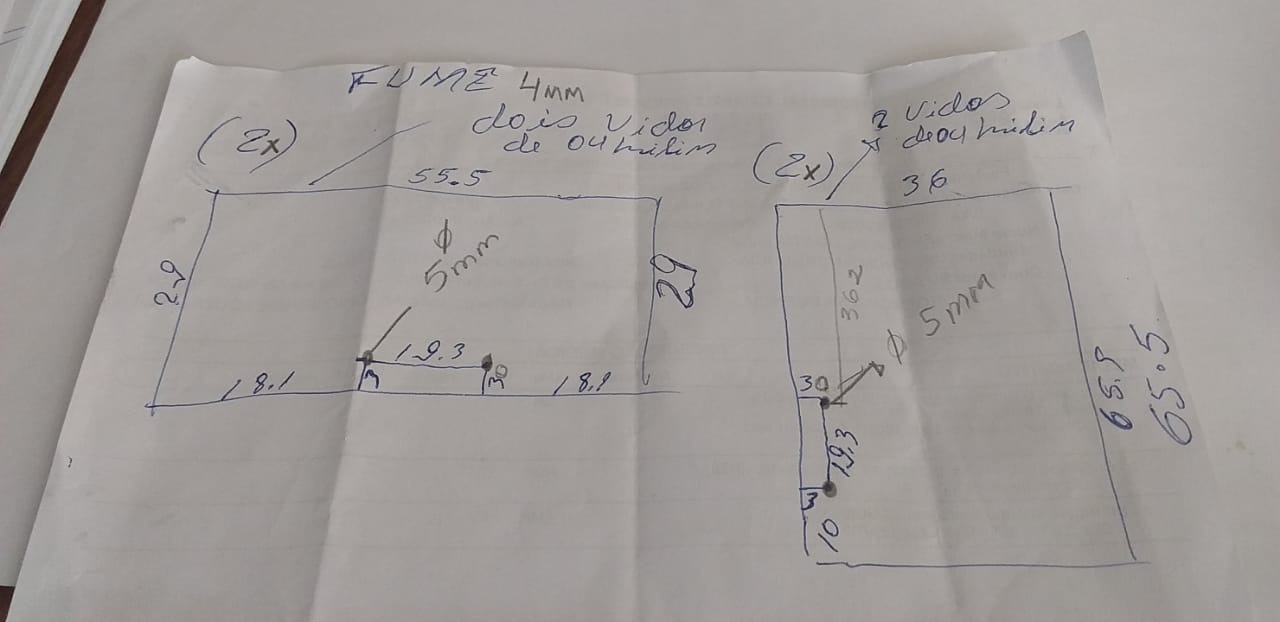 FUME 4mm
dois vidos
de 04 milim
(2x)
55.5
29
29
φ
5mm
19.3
3
30
18.1
18.1
2 vidos
de 04 milim
(2x)
36
36 2
φ 5mm
30
19.3
3
10
65.9
65.5